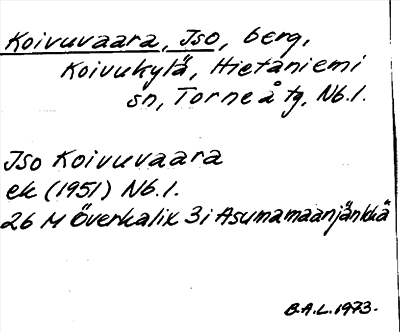 Koivuvaara, Iso, berg,
Koivukylä, Hietaniemi
sn, Torneå tg, Nb.l.
Iso Koivuvaara
ek (1951) Nb.l.
26 M Överkalix 3i Asumamaanjänkkä
B.A.L. 1973.